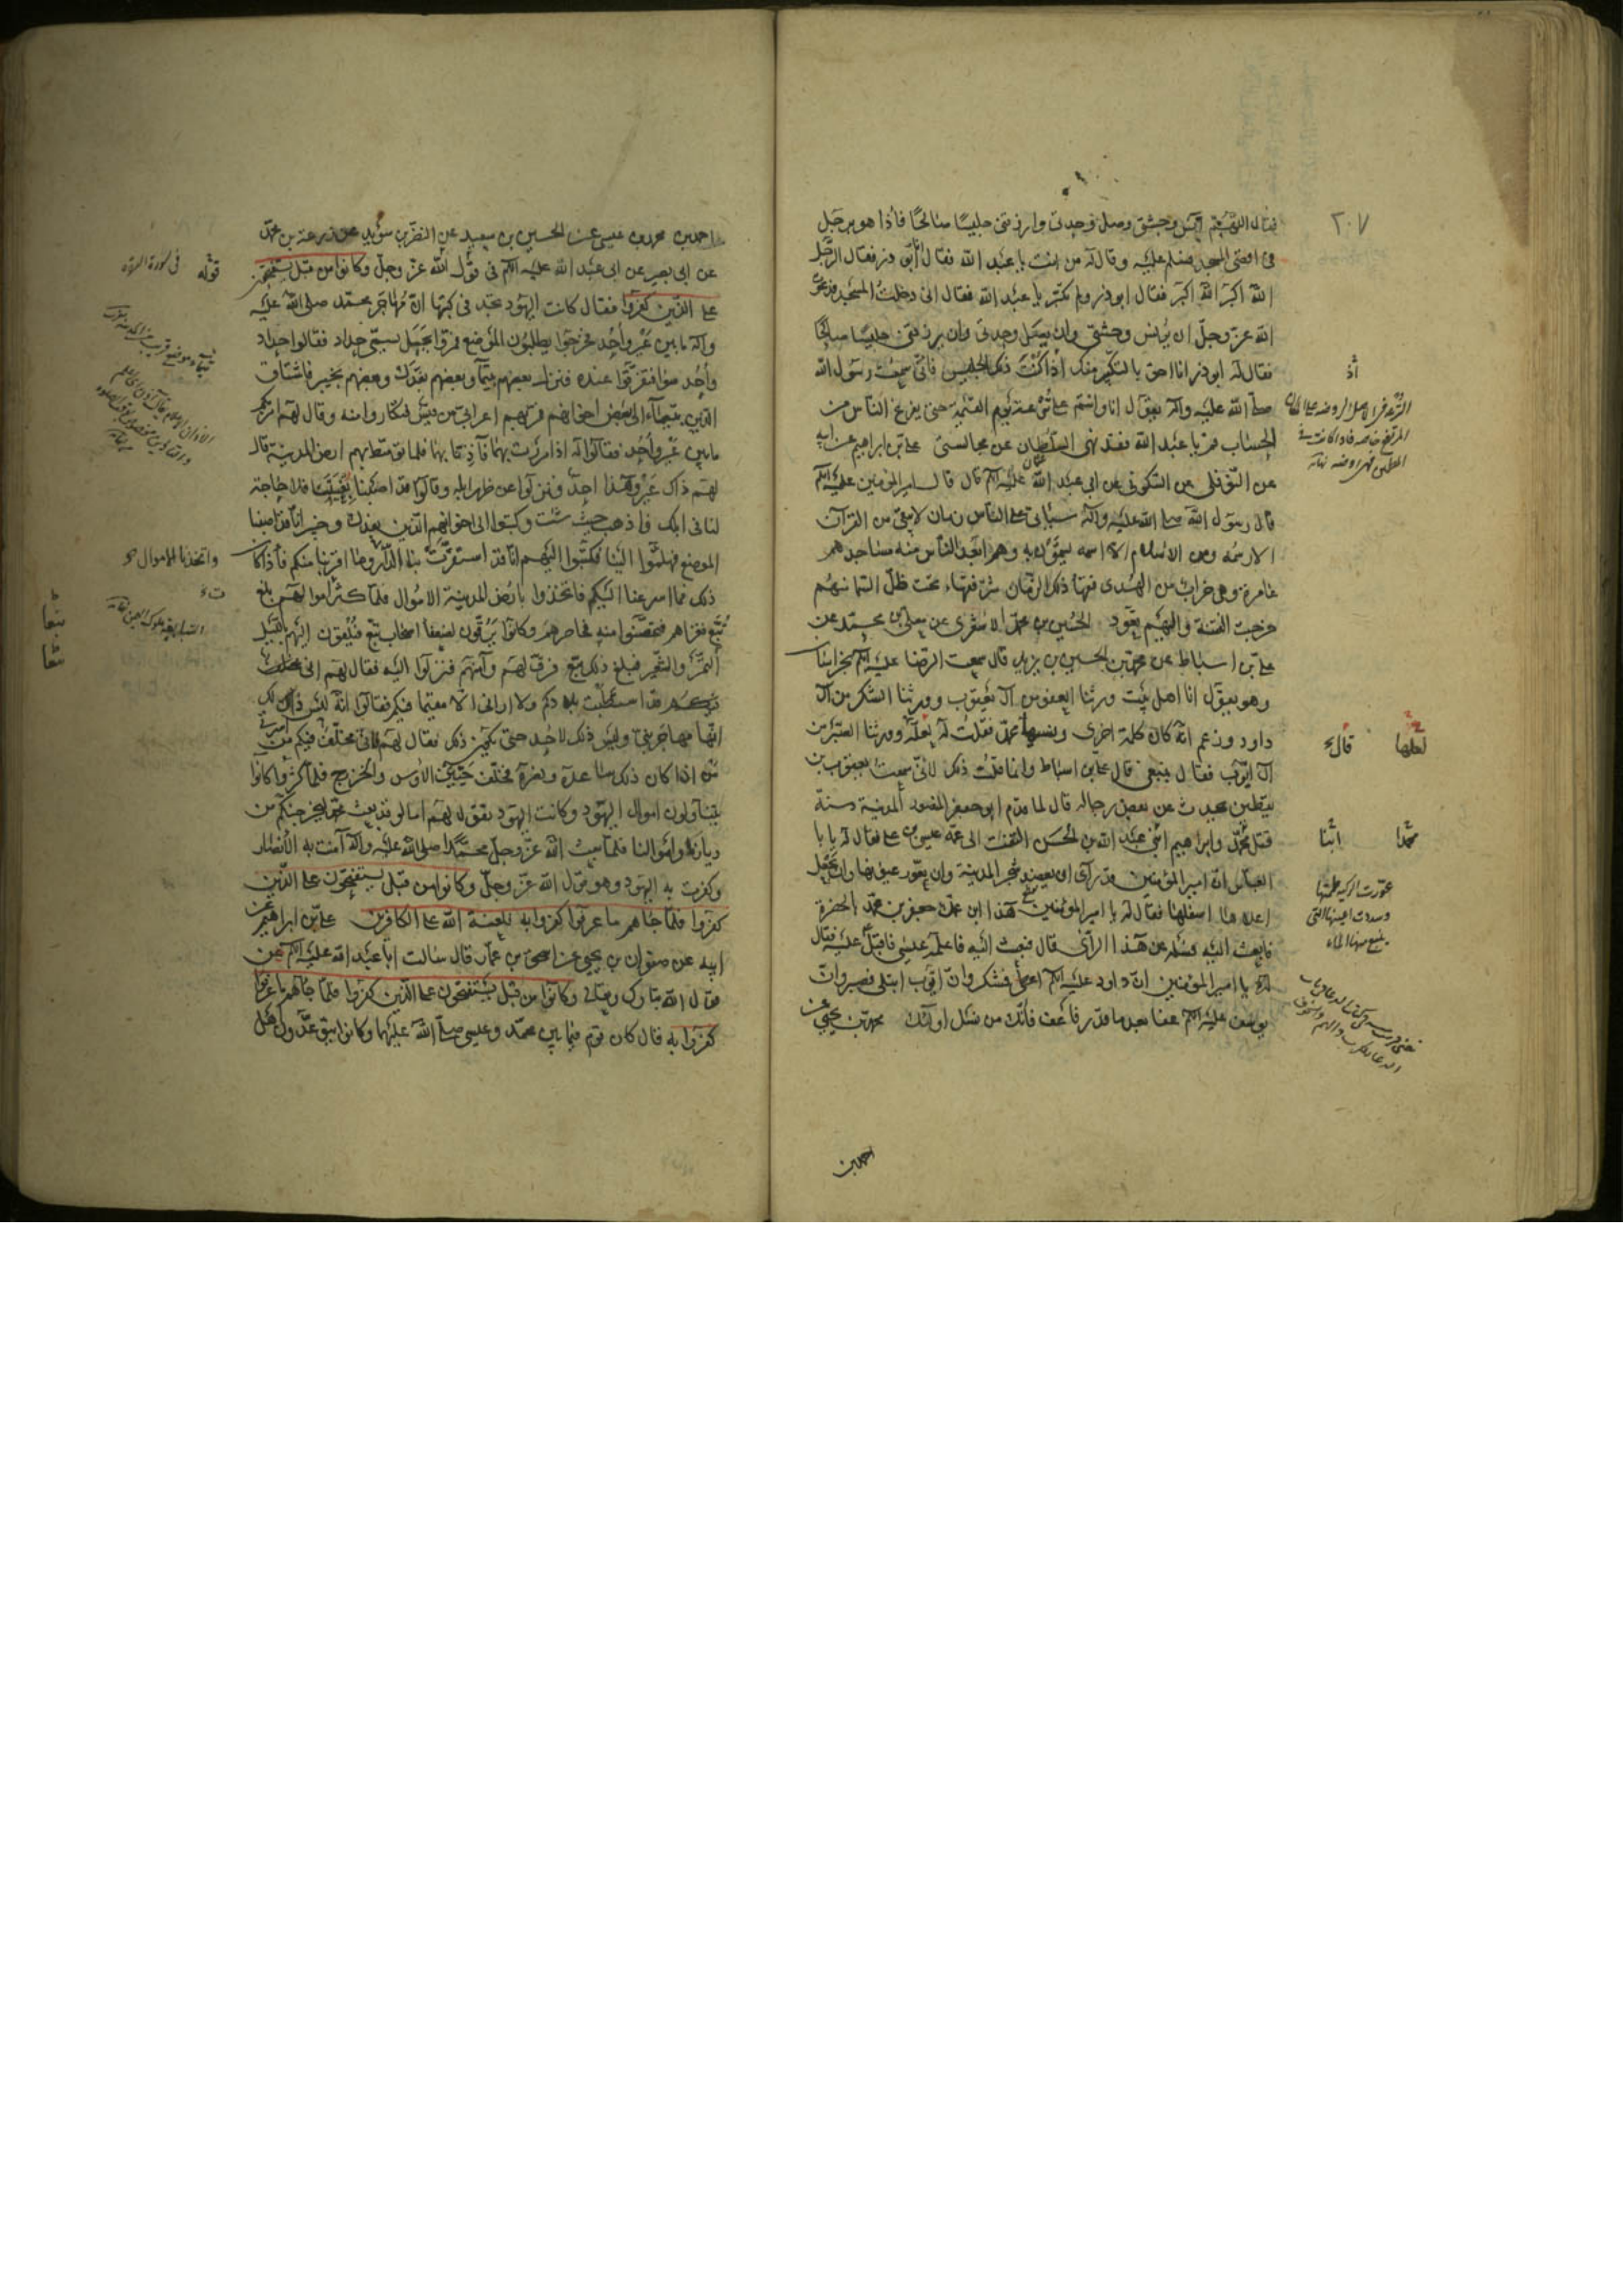 ٢٠٧
فقال اللهم آنس وحشتي وصل وحدتي وارزقني جليسا صالحا فاذا هو برجل
في اقصى المسجد فسلم عليه وقال له من انت يا عبد الله فقال انا ابو ذر فقال الرجل
الله اكبر الله اكبر فقال ابو ذر ولم تكبر يا عبد الله فقال اني دخلت المسجد فدعوت
الله عز وجل ان يؤنس وحشتي وان يصل وحدتي وان يرزقني جليسا صالحا
فقال له ابو ذر انا احق بالتكبير منك اذا كنت ذلك الجليس فاني سمعت رسول الله
صلى الله عليه وآله يقول انا وانتم على ترعة يوم القيمة حتى يفرغ الناس من
الحساب قم يا عبد الله فقد نهى السلطان عن مجالستي علي بن ابراهيم عن ابيه
عن النوفلي عن السكوني عن ابي عبد الله عليه السلم قال قال امير المؤمنين عليه السلم
قال رسول الله صلى الله عليه وآله سياتي على الناس زمان لا يبقى من القرآن
الا رسمه ومن الاسلام الا اسمه يسمون به وهم ابعد الناس منه مساجدهم
عامرة وهي خراب من الهدى فقهاء ذلك الزمان شر فقهاء تحت ظل السماء منهم
خرجت الفتنة واليهم تعود الحسين بن محمد الاشعري عن معلى بن محمد عن
علي بن اسباط عن محمد بن الحسين بن يزيد قال سمعت الرضا عليه السلم بخراسان
وهو يقول انا اهل بيت ورثنا العفو من آل يعقوب وورثنا الشكر من آل
داود وزعم انه كان كلمة اخرى ونسيها محمد فقلت له لعله وورثنا الصبر من
آل ايوب فقال ينبغي قال علي بن اسباط وانما قلت ذلك لاني سمعت يعقوب بن
يقطين يحدث عن بعض رجاله قال لما قدم ابو جعفر المنصور المدينة سنة
قتل محمد وابراهيم ابني عبد الله بن الحسن التفت الى عمه عيسى بن علي فقال له يا با
العباس ان امير المؤمنين قد رآى ان يعضد شجر المدينة وان يعور عيونها وان يجعل
اعلاها اسفلها فقال له يا امير المؤمنين هذا ابن عمك جعفر بن محمد بالحضرة
فابعث اليه فسله عن هذا الرأي قال فبعث اليه فاعلمه عيسى فاقبل عليه فقال
له يا امير المؤمنين ان داود عليه السلم اعطي فشكر وان ايوب ابتلي فصبر وان
يوسف عليه السلم عفا بعد ما قدر فاعف فانك من نسل اولئك محمد بن يحيى عن
احمد بن
اذ
لعلها
قال
محمد
ابنا
احمد بن محمد بن عيسى عن الحسين بن سعيد عن النضر بن سويد عن زرعة بن محمد
عن ابي بصير عن ابي عبد الله عليه السلم في قول الله عز وجل وكانوا من قبل يستفتحون
على الذين كفروا فقال كانت اليهود تجد في كتبها ان مهاجر محمد صلى الله عليه
وآله ما بين عير واحد فخرجوا يطلبون الموضع فمروا بجبل يسمى حداد فقالوا حداد
واحد سواء فتفرقوا عنده فنزل بعضهم بتيما وبعضهم بفدك وبعضهم بخيبر فاشتاق
الذين بتيماء الى بعض اخوانهم فمر بهم اعرابي من قيس فتكاروا منه وقال لهم امر بكم
ما بين عير واحد فقالوا له اذا مررت بهما فآذنا بهما فلما توسط بهم ارض المدينة قال
لهم ذاك عير وهذا احد فنزلوا عن ظهر ابله وقالوا قد اصبنا بغيتنا فلا حاجة
لنا في ابلك فاذهب حيث شئت وكتبوا الى اخوانهم الذين بفدك وخيبر انا قد اصبنا
الموضع فهلموا الينا فكتبوا اليهم انا قد استقرت بنا الدار وما اقربنا منكم فاذا كان
ذلك فما اسرعنا اليكم فاتخذوا بارض المدينة الاموال فلما كثرت اموالهم بلغ
تبع فغزاهم فتحصنوا منه فحاصرهم وكانوا يرقون لضعفا اصحاب تبع فيلقون اليهم بالليل
التمر والشعير فبلغ ذلك تبع فرق لهم وآمنهم فنزلوا اليه فقال لهم اني
قد استطبت بلادكم ولا اراني الا مقيما فيكم فقالوا انه ليس ذلك لك
انها مهاجر نبي وليس ذلك لاحد حتى يكون ذلك فقال لهم فاني مخلف فيكم من
من اذا كان ذلك ساعده ونصره فخلف حيين الاوس والخزرج فلما كثروا كانوا
يتناولون اموال اليهود وكانت اليهود تقول لهم اما لو قد بعث محمد ليخرجنكم من
ديارنا واموالنا فلما بعث الله عز وجل محمدا صلى الله عليه وآله آمنت به الانصار
وكفرت به اليهود وهو قول الله عز وجل وكانوا من قبل يستفتحون على الذين
كفروا فلما جاءهم ما عرفوا كفروا به فلعنة الله على الكافرين علي بن ابراهيم عن
ابيه عن صفوان بن يحيى عن اسحق بن عمار قال سالت ابا عبد الله عليه السلم عن
قول الله تبارك وتعالى وكانوا من قبل يستفتحون على الذين كفروا فلما جاءهم ما عرفوا
كفروا به قال كان قوم فيما بين محمد وعيسى صلى الله عليهما وكانوا يتوعدون اهل
قوله
في سورة البقرة
واتخذنا الاموال